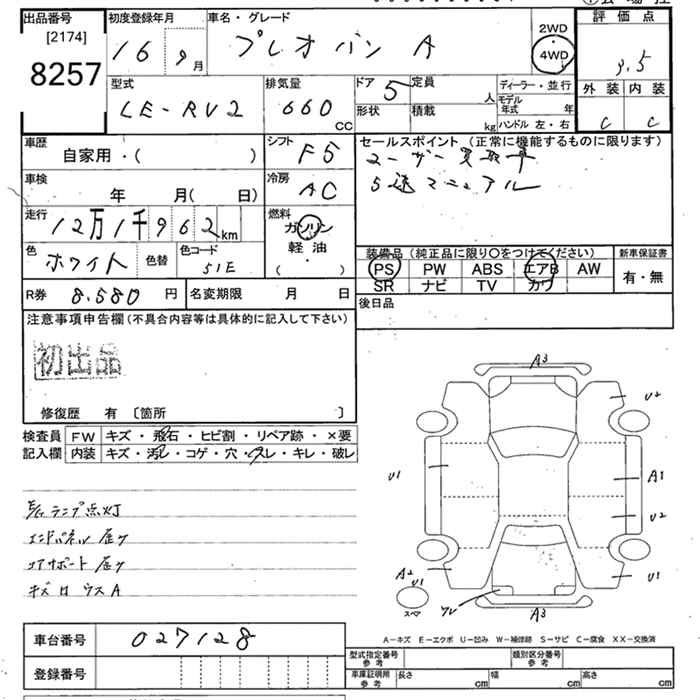 出品番号 初度登録年月 車名・グレード 評価点
[2174] 16 9月 プレオバン A 2WD・4WD 9.5
8257
型式 排気量 ドア 定員 ディーラー・並行 外装 内装
LE-RV2 660 CC 5 人 モデル年式 年 C C
形状 積載 kg ハンドル 左・右
車歴 シフト セールスポイント (正常に機能するものに限ります)
自家用・( ) F5 ユーザー買取車
車検 冷房 5速マニュアル
年 月( 日) AC
走行 燃料
12万1千962km ガソリン
色 色替 色コード 軽油
ホワイト 51E ・
( )
装備品(純正品に限り〇をつけてください) 新車保証書
PS PW ABS エアB AW 有・無
SR ナビ TV カワ
R券 8.580 円 名変期限 月 日 後日品
注意事項申告欄(不具合内容等は具体的に記入して下さい)
初出品
修復歴 有 〔箇所 〕
検査員 FW キズ・飛石・ヒビ割・リペア跡・×要
記入欄 内装 キズ・汚れ・コゲ・穴・スレ・キレ・破レ
ランプ点灯
エンドパネル
コアサポート
キズ
A3
U2
U1
A1
U2
A2
U1
U1
スペア
A3
A-キズ E-エクボ U-凹み W-補修跡 S-サビ C-腐食 XX-交換済
車台番号 027128
登録番号
型式指定番号 参考 類別区分番号 参考
車庫証明用 参考 長さ cm 幅 cm 高さ cm